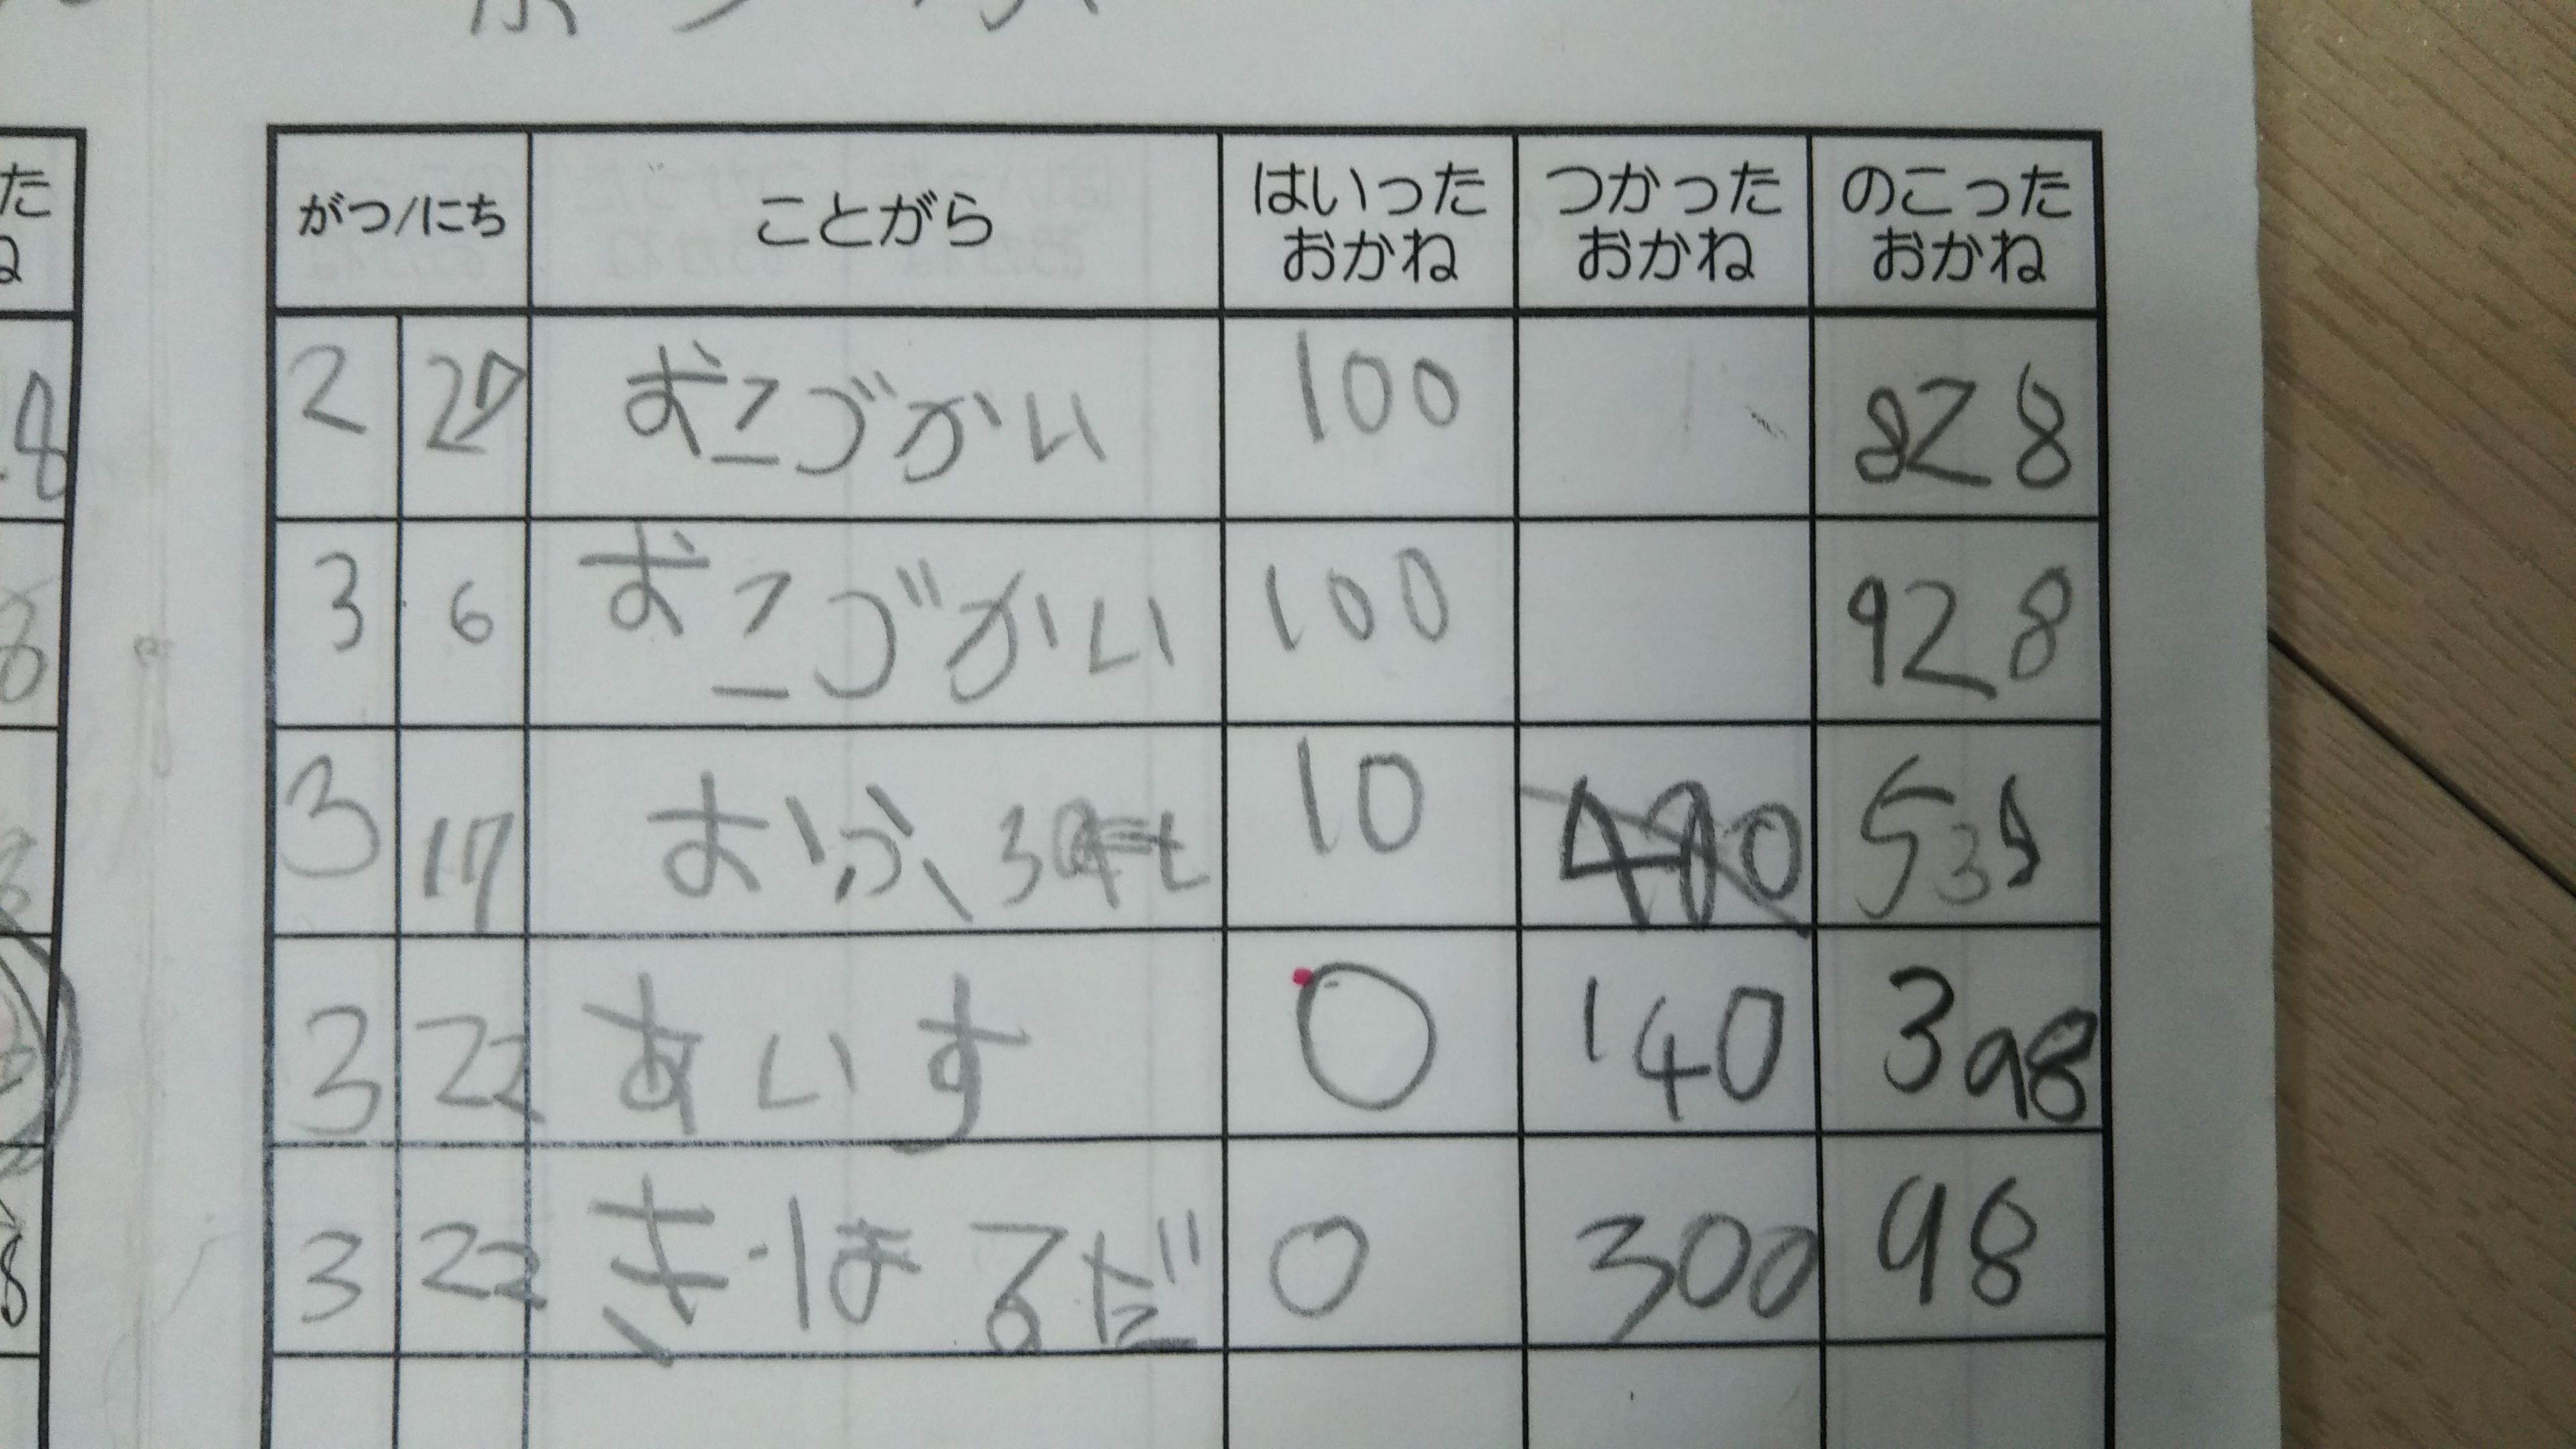 がつ/にち ことがら はいったおかね つかったおかね のこったおかね
2 27 おこづかい 100 828
3 6 おこづかい 100 928
3 17 10 538
3 22 あいす 0 140 398
3 22 きーほるだ 0 300 98